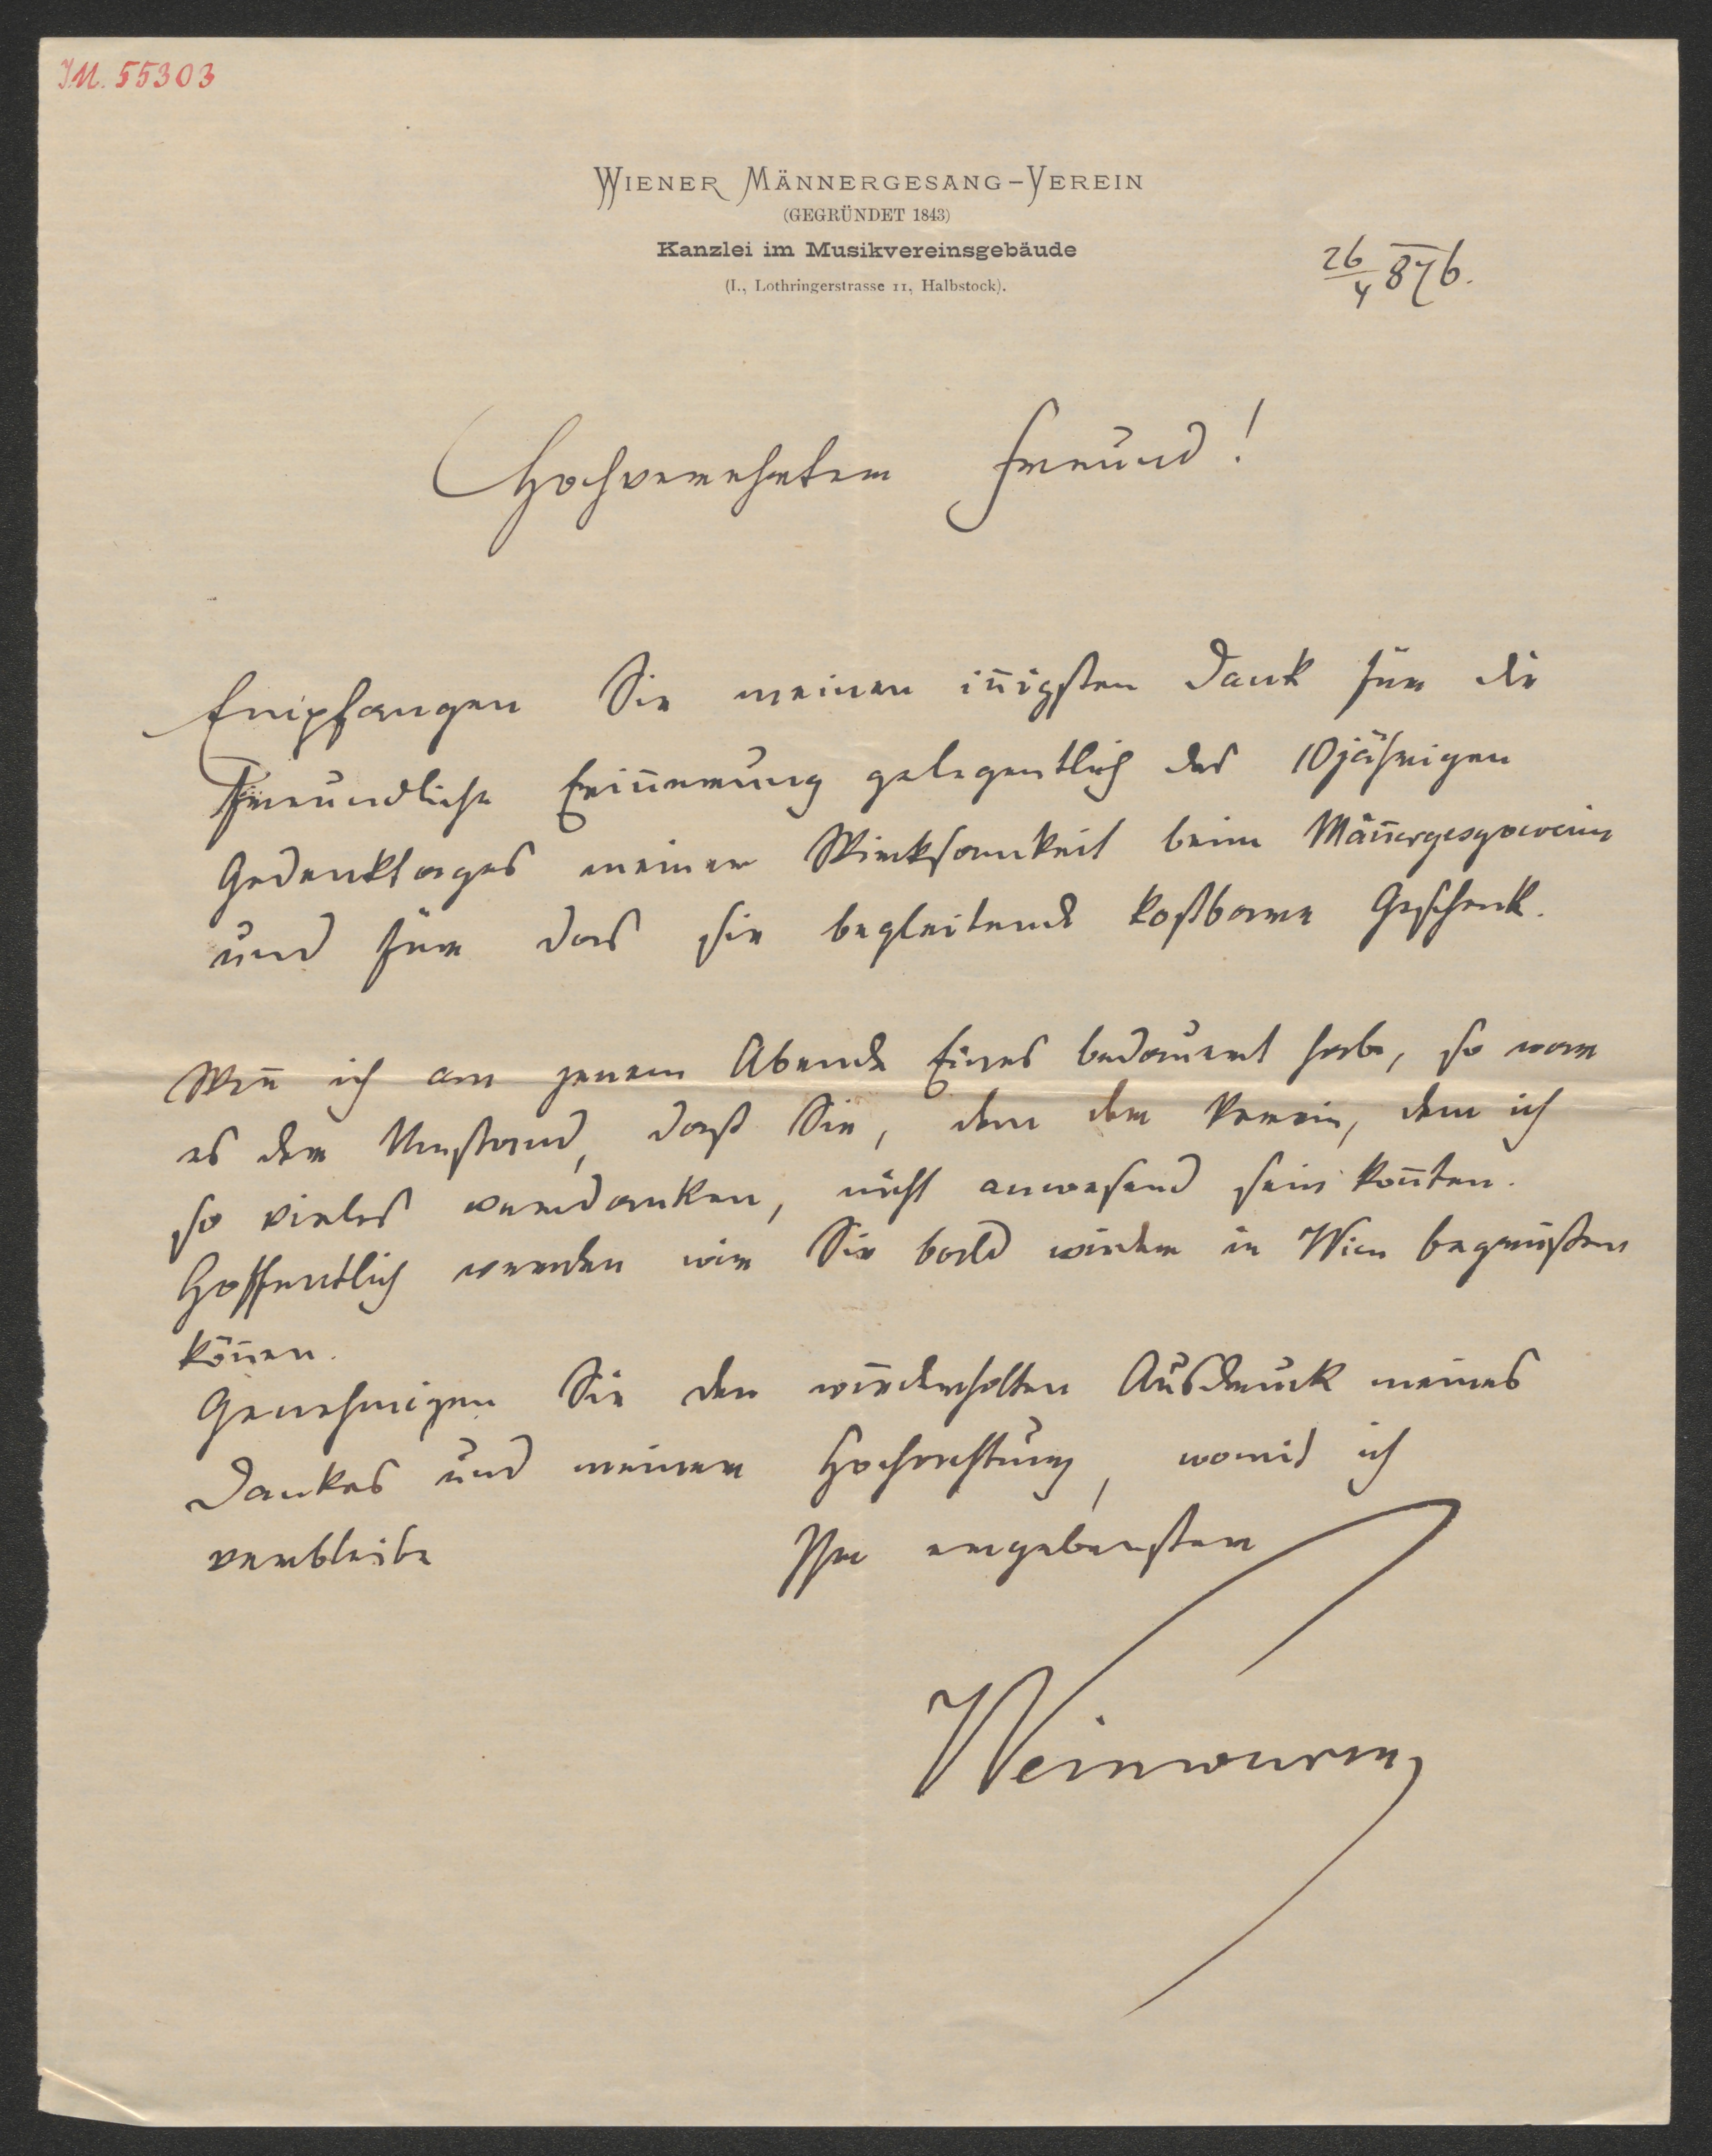 I.N. 55303
WIENER MÄNNERGESANG-VEREIN
(GEGRÜNDET 1843)
Kanzlei im Musikvereinsgebäude
(I., Lothringerstrasse 11, Halbstock).
26/4 876.
Hochverehrter Freund!
Empfangen Sie meinen in̄igsten Dank für die
freundliche Erin̄erung gelegentlich des 10jährigen
Gedenktages meiner Wirksamkeit beim Män̄ergesgverein
und für das sie begleitende kostbare Geschenk.
Wen̄ ich an jenem Abende Eines bedauert habe, so war
es der Umstand, daß Sie, dem der Verein, dem ich
so vieles verdanken, nicht anwesend sein kon̄ten.
Hoffentlich werden wir Sie bald wieder in Wien begrüßen
kön̄en.
Genehmigen Sie den wiederholten Ausdruck meines
Dankes und meiner Hochachtung, womit ich
verbleibe Ihr ergebenster
Weinwurm